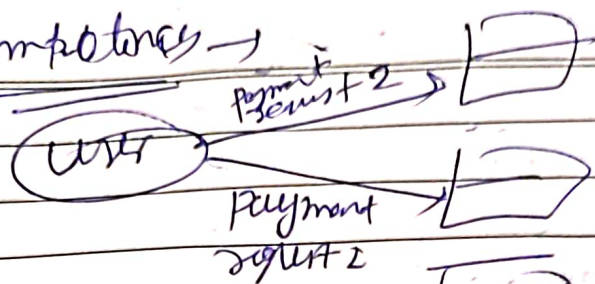 mpotency →
payment
request 2
User
Payment
request 2